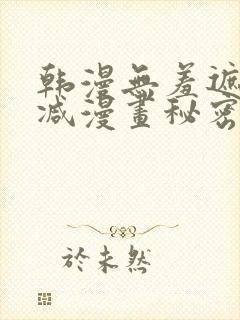 韩漫無羞遮
减漫畫秘密
於未然